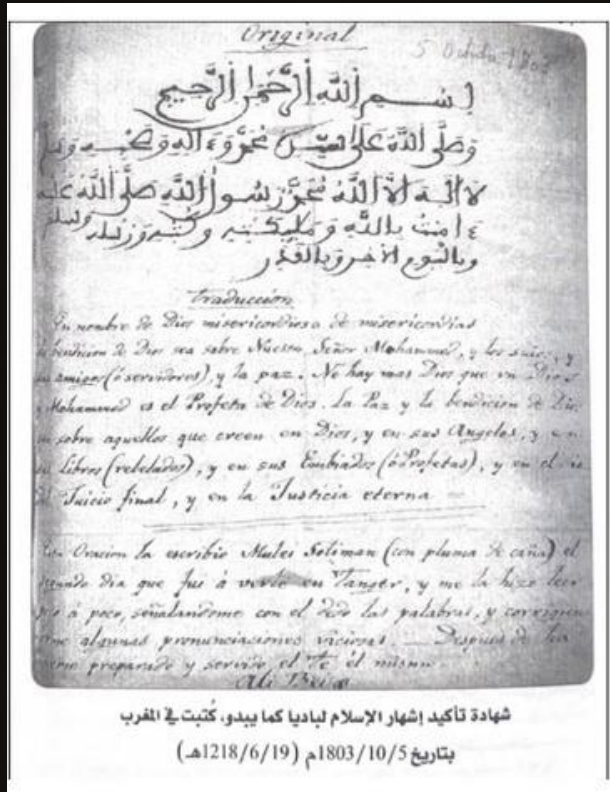 Original
5 Octubre 1803
بسم الله الرحمن الرحيم
وصلى الله على سيدنا محمد وءاله وصحبه وسلم
لا اله الا الله محمد رسول الله صلى الله عليه وسلم
ءامنت بالله ومليكته وكتبه ورسله
وباليوم الاخر وبالقدر
Traduccion
En nombre de Dios misericordioso de misericordias
la bendicion de Dios sea sobre Nuestro Señor Mohammed, y los suios, y
sus amigos (ó servidores), y la paz. No hay mas Dios que un Dios
Mohammed es el Profeta de Dios. La Paz y la bendicion de Dios
sobre aquellos que creen en Dios, y en sus Angeles, y en
sus libros (rebelados), y en sus Embiados (ó Profetas), y en el dia
del Juicio final, y en la Justicia eterna
Esta Oracion la escribio Mulei Soliman (con pluma de caña) el
segundo dia que fui á verle en Tanger, y me la hizo leer
poco á poco, señalandome con el dedo las palabras, y corrigien
dome algunas pronunciaciones viciosas. Despues de
preparado y servido el Te él mismo
Ali Bei
شهادة تأكيد إشهار الإسلام لباديا كما يبدو، كُتبت في المغرب
بتاريخ 1803/10/5م (1218/6/19هـ)